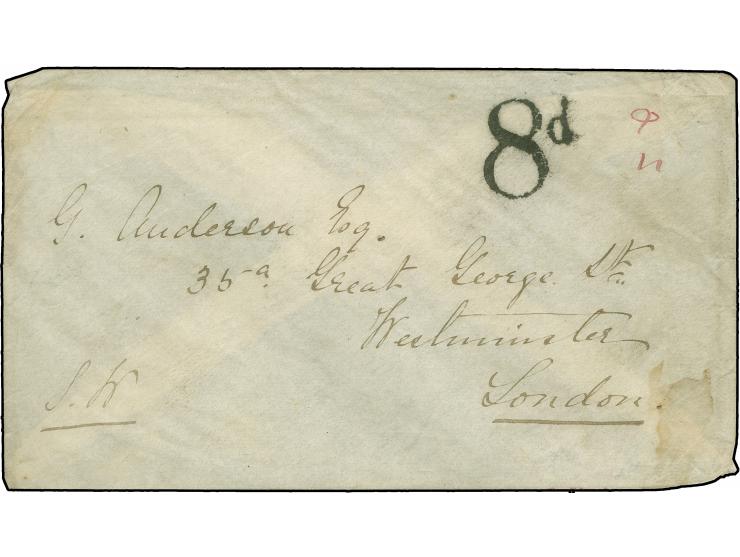 8d
G. Anderson Esq.
35a. Great George St.
Westminster
London.
S.W